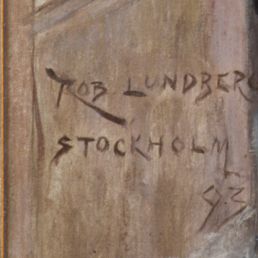 ROB LUNDBERG
STOCKHOLM
93